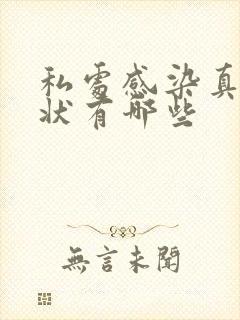 私處感染真
狀有哪些
無言未聞